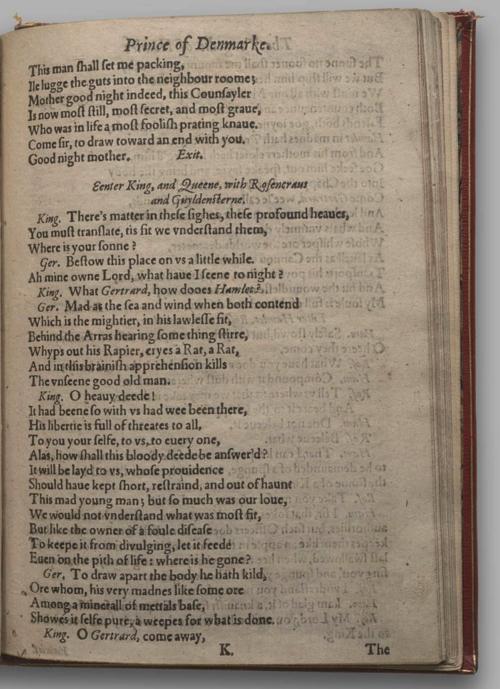 Prince of Denmarke.
This man ſhall ſet me packing,
Ile lugge the guts into the neighbour roome;
Mother good night indeed, this Counſayler
Is now moſt ſtill, moſt ſecret, and moſt graue,
Who was in life a moſt fooliſh prating knaue.
Come ſir, to draw toward an end with you.
Good night mother. Exit.
Eenter King, and Queene, with Roſencraus
and Guyldenſterne.
King. There's matter in theſe ſighes, theſe profound heaues,
You muſt tranſlate, tis fit we vnderſtand them,
Where is your ſonne?
Ger. Beſtow this place on vs a little while.
Ah mine owne Lord, what haue I ſeene to night?
King. What Gertrard, how dooes Hamlet?
Ger. Mad as the ſea and wind when both contend
Which is the mightier, in his lawleſſe fit,
Behind the Arras hearing ſome thing ſtirre,
Whyps out his Rapier, cryes a Rat, a Rat,
And in this brainiſh apprehenſion kills
The vnſeene good old man.
King. O heauy deede!
It had beene ſo with vs had wee been there,
His libertie is full of threates to all,
To you your ſelfe, to vs, to euery one,
Alas, how ſhall this bloody deede be anſwer'd?
It will be layd to vs, whoſe prouidence
Should haue kept ſhort, reſtraind, and out of haunt
This mad young man; but ſo much was our loue,
We would not vnderſtand what was moſt fit,
But like the owner of a foule diſeaſe
To keepe it from divulging, let it feede
Euen on the pith of life: where is he gone?
Ger. To draw apart the body he hath kild,
Ore whom, his very madnes like ſome ore
Among a minerall of mettals baſe,
Showes it ſelfe pure, a weepes for what is done.
King. O Gertrard, come away,
K. The